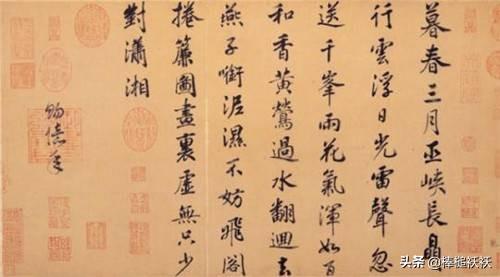 暮春三月巫峽長皛
行雲浮日光雷聲忽
送千峯雨花氣渾如百
和香黃鶯過水翻迴去
燕子銜泥濕不妨飛閣
捲簾圖畫裏虛無只少
對瀟湘
头条 @棒槌